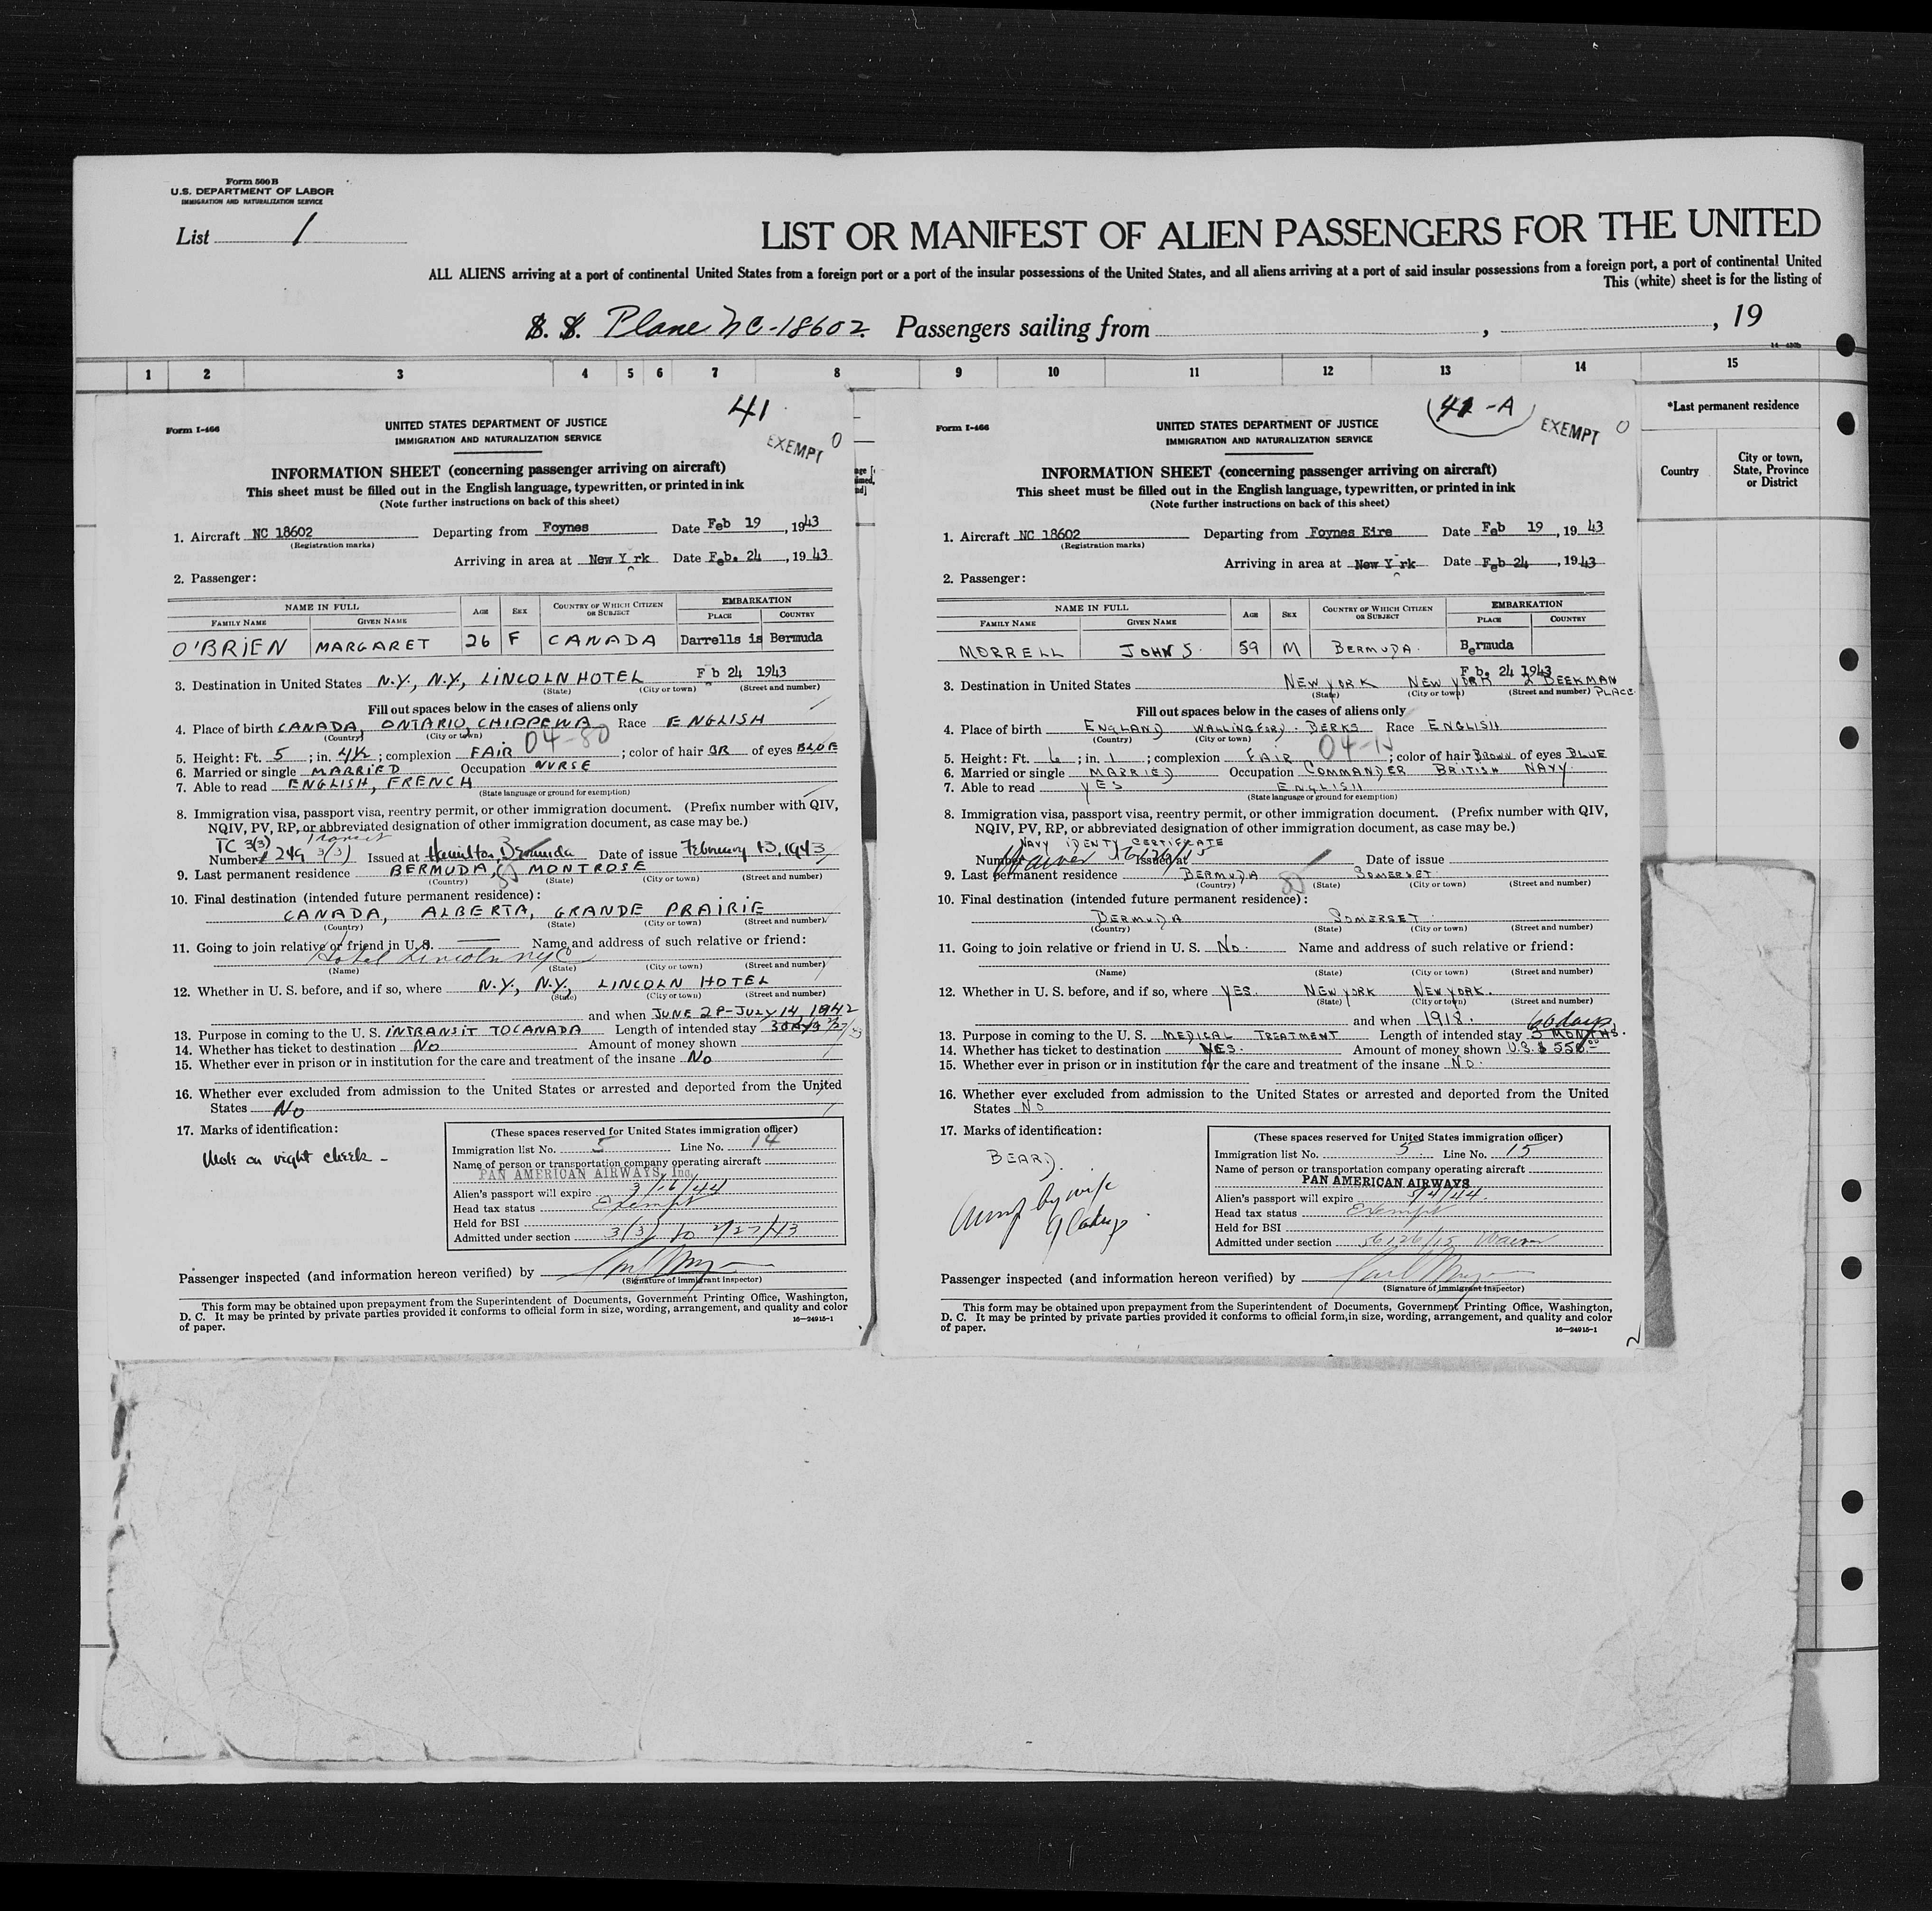 Form 500 B
U.S. DEPARTMENT OF LABOR
IMMIGRATION AND NATURALIZATION SERVICE
List 1
LIST OR MANIFEST OF ALIEN PASSENGERS FOR THE UNITED
ALL ALIENS arriving at a port of continental United States from a foreign port or a port of the insular possessions of the United States, and all aliens arriving at a port of said insular possessions from a foreign port, a port of continental United
This (white) sheet is for the listing of
S. S. Plane NC-18602 Passengers sailing from , , 19
1 2 3 4 5 6 7 8 9 10 11 12 13 14 15
*Last permanent residence
Country
City or town, State, Province or District
41
Form I-466
UNITED STATES DEPARTMENT OF JUSTICE
IMMIGRATION AND NATURALIZATION SERVICE
EXEMPT 0
INFORMATION SHEET (concerning passenger arriving on aircraft)
This sheet must be filled out in the English language, typewritten, or printed in ink
(Note further instructions on back of this sheet)
1. Aircraft NC 18602 Departing from Foynes Date Feb 19, 1943
(Registration marks)
Arriving in area at New Y rk Date Feb. 24, 1943
2. Passenger:
NAME IN FULL AGE SEX COUNTRY OF WHICH CITIZEN OR SUBJECT EMBARKATION
FAMILY NAME GIVEN NAME PLACE COUNTRY
O'BRIEN MARGARET 26 F CANADA Darrells is Bermuda
F b 24 1943
3. Destination in United States N.Y., N.Y., LINCOLN HOTEL
(State) (City or town) (Street and number)
Fill out spaces below in the cases of aliens only
4. Place of birth CANADA, ONTARIO, CHIPPEWA Race ENGLISH
(Country) (City or town)
04-80
5. Height: Ft. 5; in. 4½; complexion FAIR; color of hair BR of eyes BLUE
6. Married or single MARRIED Occupation NURSE
7. Able to read ENGLISH, FRENCH
(State language or ground for exemption)
8. Immigration visa, passport visa, reentry permit, or other immigration document. (Prefix number with QIV,
NQIV, PV, RP, or abbreviated designation of other immigration document, as case may be.)
TC 3(3) Transit
Number 249 3(3) Issued at Hamilton, Bermuda Date of issue February 13, 1943
9. Last permanent residence BERMUDA, MONTROSE
(Country) (State) (City or town) (Street and number)
10. Final destination (intended future permanent residence):
CANADA, ALBERTA, GRANDE PRAIRIE
(Country) (State) (City or town) (Street and number)
11. Going to join relative or friend in U.S. — Name and address of such relative or friend:
Hotel Lincoln NYC
(Name) (State) (City or town) (Street and number)
12. Whether in U. S. before, and if so, where N.Y., N.Y., LINCOLN HOTEL
(State) (City or town) (Street and number)
and when JUNE 28-JULY 14, 1942
13. Purpose in coming to the U. S. INTRANSIT TO CANADA Length of intended stay 3 DAYS 2/27/43
14. Whether has ticket to destination No Amount of money shown
15. Whether ever in prison or in institution for the care and treatment of the insane No
16. Whether ever excluded from admission to the United States or arrested and deported from the United
States No
17. Marks of identification:
Mole on right cheek -
(These spaces reserved for United States immigration officer)
Immigration list No. 5 Line No. 14
Name of person or transportation company operating aircraft
PAN AMERICAN AIRWAYS, Inc.
Alien's passport will expire 3/16/44
Head tax status Exempt
Held for BSI
Admitted under section 3(3) to 2/27/43
Passenger inspected (and information hereon verified) by
(Signature of immigrant inspector)
This form may be obtained upon prepayment from the Superintendent of Documents, Government Printing Office, Washington,
D. C. It may be printed by private parties provided it conforms to official form in size, wording, arrangement, and quality and color
of paper.
16-24915-1
41 -A
Form I-466
UNITED STATES DEPARTMENT OF JUSTICE
IMMIGRATION AND NATURALIZATION SERVICE
EXEMPT 0
INFORMATION SHEET (concerning passenger arriving on aircraft)
This sheet must be filled out in the English language, typewritten, or printed in ink
(Note further instructions on back of this sheet)
1. Aircraft NC 18602 Departing from Foynes Eire Date Feb 19, 1943
(Registration marks)
Arriving in area at New Y rk Date Feb 24, 1943
2. Passenger:
NAME IN FULL AGE SEX COUNTRY OF WHICH CITIZEN OR SUBJECT EMBARKATION
FAMILY NAME GIVEN NAME PLACE COUNTRY
MORRELL JOHN S. 59 M BERMUDA. Bermuda
F b. 24 1943
3. Destination in United States NEW YORK NEW YORK 2 BEEKMAN PLACE
(State) (City or town) (Street and number)
Fill out spaces below in the cases of aliens only
4. Place of birth ENGLAND WALLINGFORD. BERKS Race ENGLISH
(Country) (City or town)
5. Height: Ft. 6; in. 1; complexion FAIR; color of hair BROWN of eyes BLUE
6. Married or single MARRIED Occupation COMMANDER BRITISH NAVY.
7. Able to read YES ENGLISH
(State language or ground for exemption)
8. Immigration visa, passport visa, reentry permit, or other immigration document. (Prefix number with QIV,
NQIV, PV, RP, or abbreviated designation of other immigration document, as case may be.)
NAVY IDENTY CERTIFICATE
Number Waiver 56126/15 Issued at Date of issue
9. Last permanent residence BERMUDA SOMERSET.
(Country) (State) (City or town) (Street and number)
10. Final destination (intended future permanent residence):
BERMUDA SOMERSET.
(Country) (State) (City or town) (Street and number)
11. Going to join relative or friend in U. S. No. Name and address of such relative or friend:
(Name) (State) (City or town) (Street and number)
12. Whether in U. S. before, and if so, where YES. NEW YORK NEW YORK.
(State) (City or town) (Street and number)
and when 1918. 60 days
13. Purpose in coming to the U. S. MEDICAL TREATMENT Length of intended stay 3 MONTHS.
14. Whether has ticket to destination YES. Amount of money shown U.S. $ 550.00
15. Whether ever in prison or in institution for the care and treatment of the insane NO.
16. Whether ever excluded from admission to the United States or arrested and deported from the United
States No
17. Marks of identification:
BEARD.
by wife
(These spaces reserved for United States immigration officer)
Immigration list No. 5. Line No. 15
Name of person or transportation company operating aircraft
PAN AMERICAN AIRWAYS
Alien's passport will expire 5/4/44.
Head tax status Exempt
Held for BSI
Admitted under section 56126/15 Waiver
Passenger inspected (and information hereon verified) by
(Signature of immigrant inspector)
This form may be obtained upon prepayment from the Superintendent of Documents, Government Printing Office, Washington,
D. C. It may be printed by private parties provided it conforms to official form in size, wording, arrangement, and quality and color
of paper.
16-24915-1
2